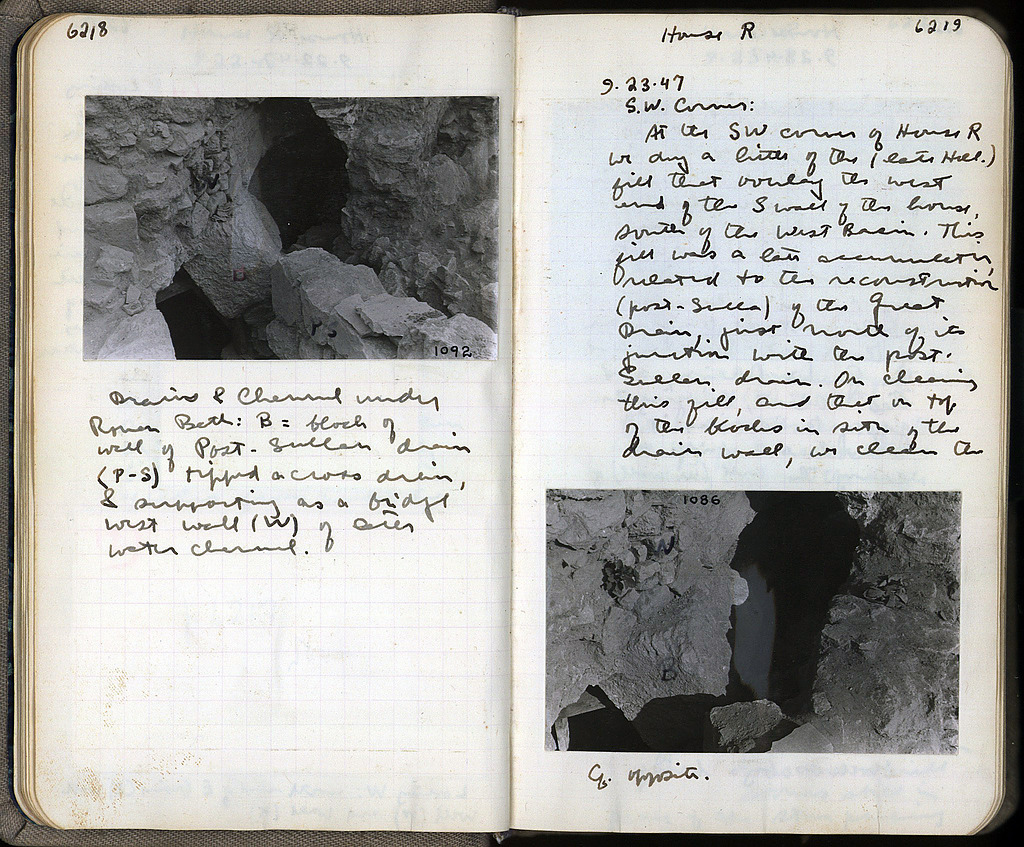 6218
1092
Drains & Channel under
Roman Bath: B = block of
wall of Post-Sullan drain
(P-S) tipped across drain,
& supporting as a bridge
west wall (W) of later
water channel.
House R 6219
9.23.47
S.W. Corner:
At the SW corner of House R
we dug a little of the (late Hell.)
fill that overlay the west
end of the S wall of the house,
south of the West Basin. This
fill was a late accumulation,
related to the reconstruction
(post-Sulla) of the Great
Drain, just north of its
junction with the post-
Sullan drain. On cleaning
this fill, and that on top
of the blocks in situ of the
drain wall, we clean the
1086
W
B
Cf. opposite.